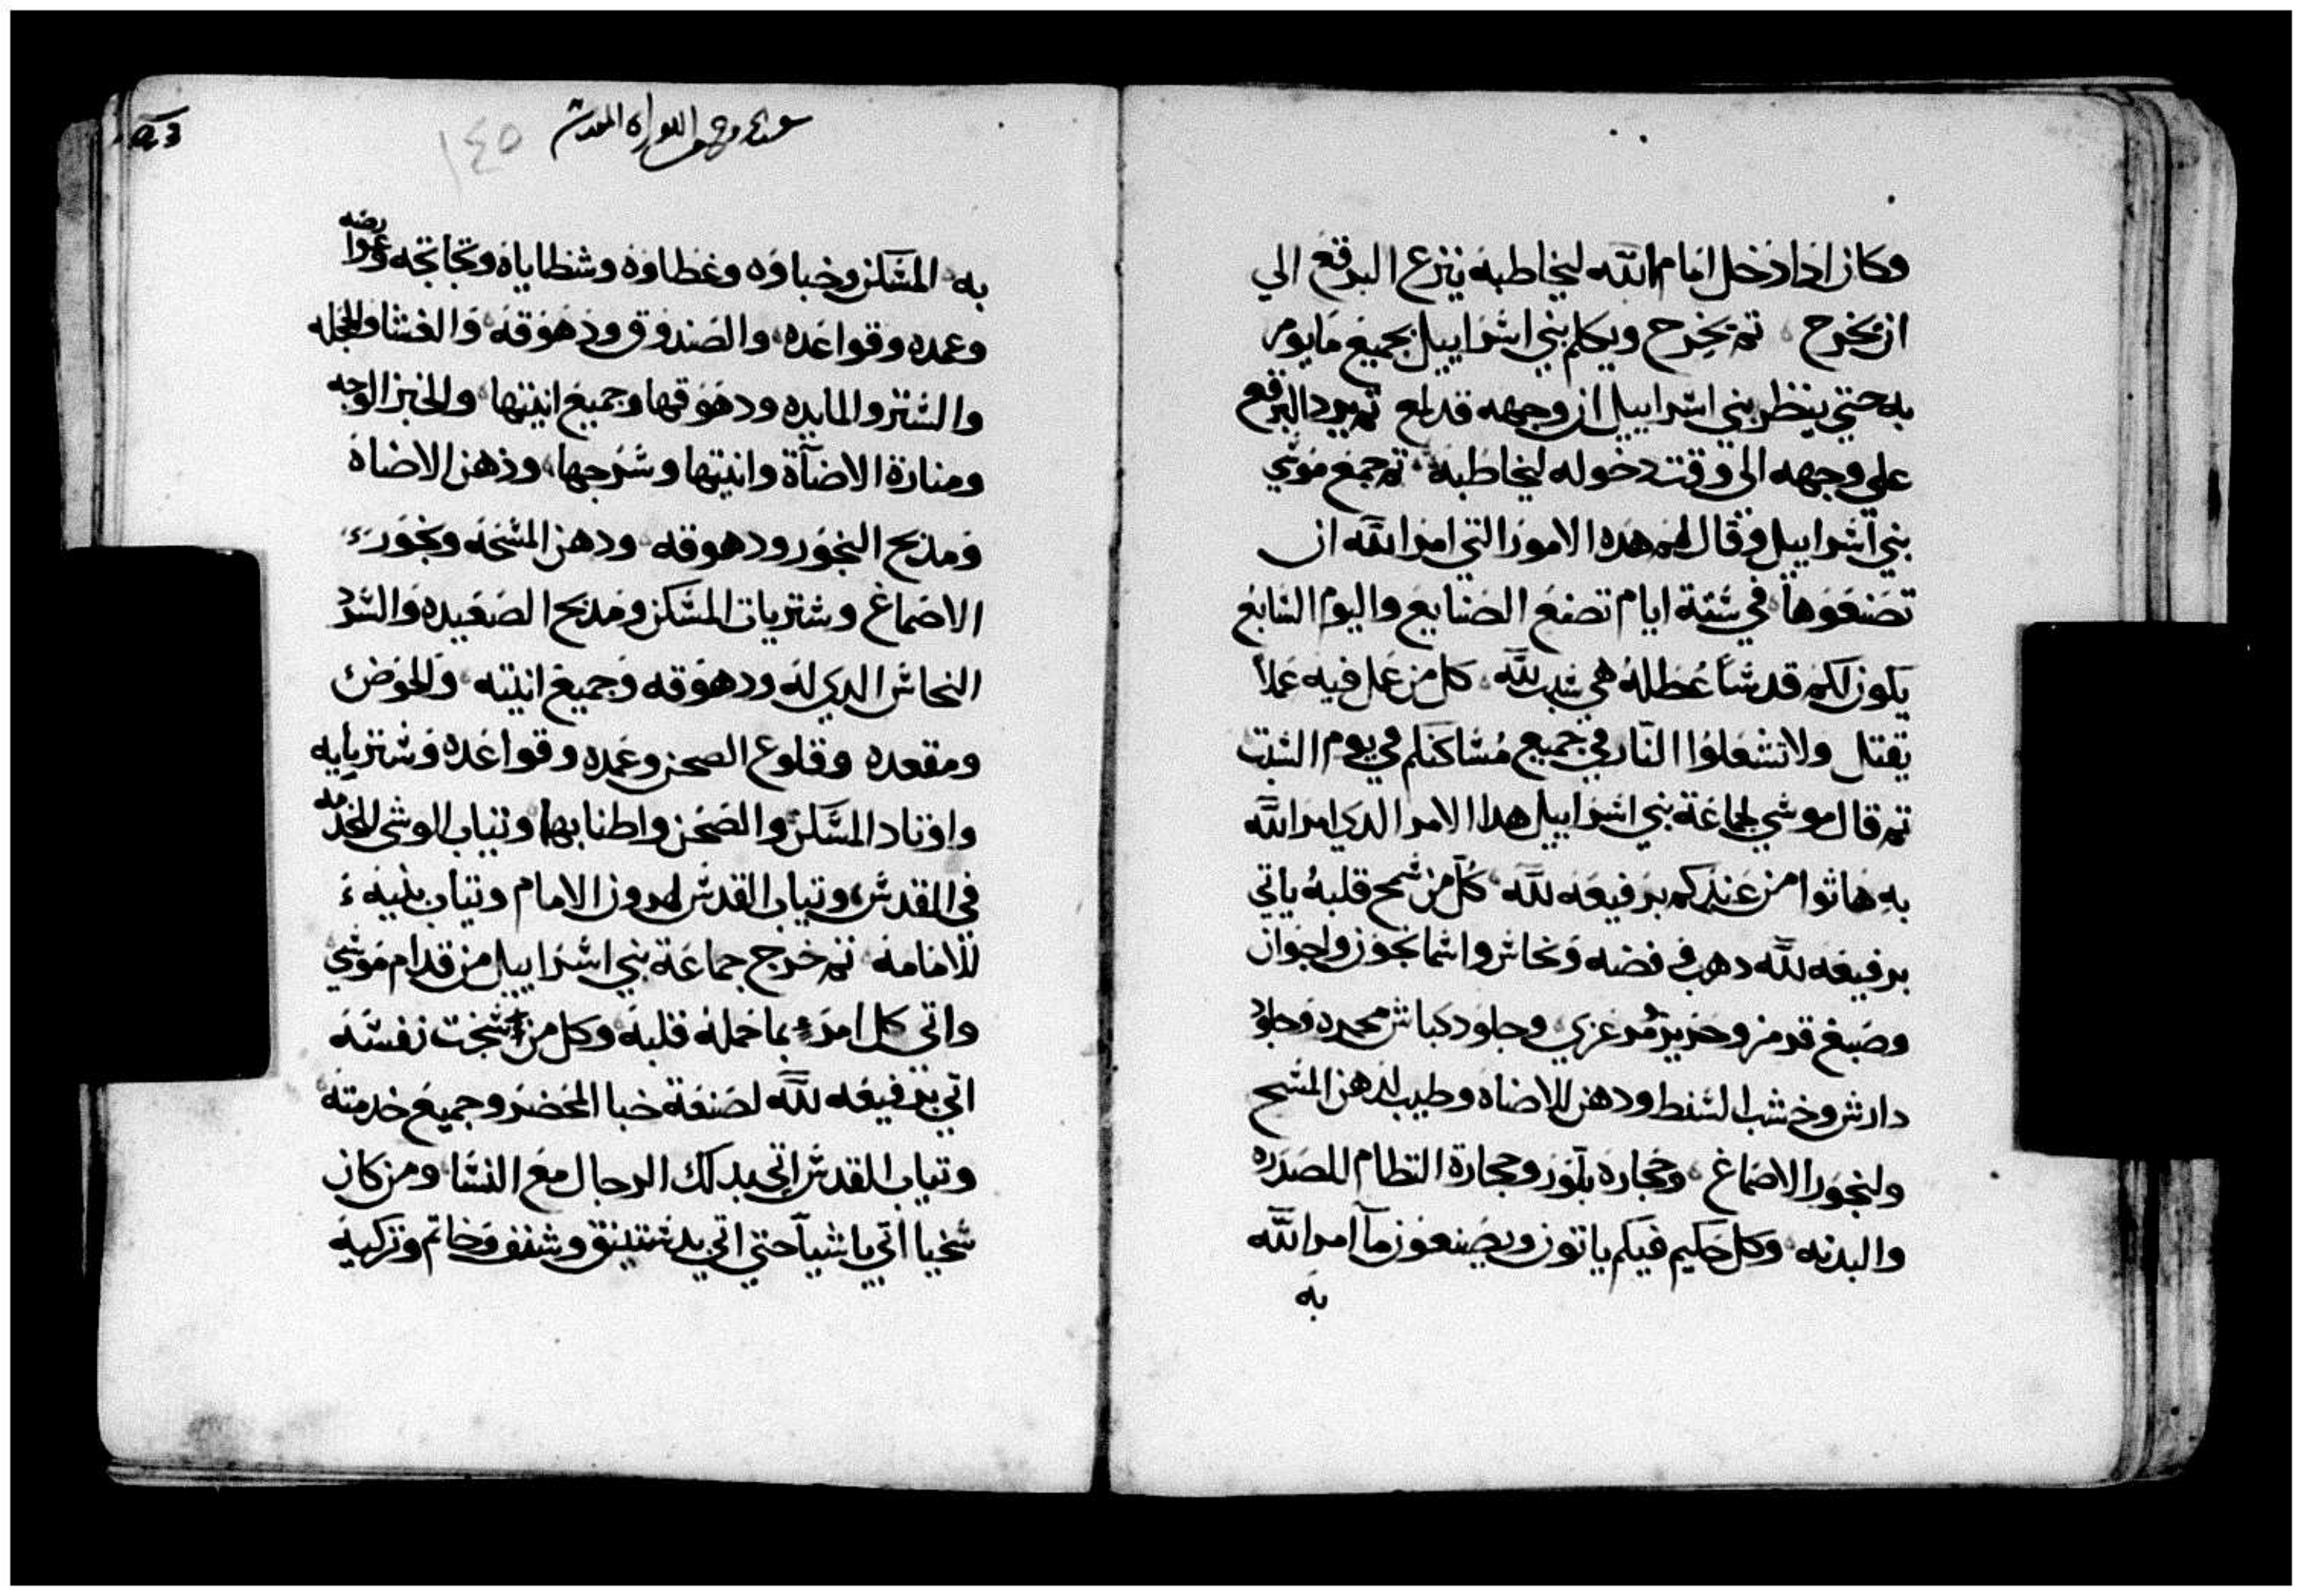 وكان ادا دخل امام الله ليخاطبه ينزع البرقع الي
ان يخرح ثم يخرح ويكلم بني اشراييل بجميع مايومر
به حتي ينظر بني اشراييل ان وجهه قد لمع ثم يرد البرقع
علي وجهه الي وقت دخوله ليخاطبه ثم جمع موشي
بني اشراييل وقال لهم هده الامور التي امر الله ان
تصنعوها في شتة ايام تصنع الصنايع واليوم الشابع
يكون لكم قدشا عطلة هي شبت لله كل من عمل فيه عملا
يقتل ولا تشعلوا النار في جميع مشاكنكم في يوم الشبت
ثم قال موشي لجماعة بني اشراييل هدا الامر الدي امر الله
به هاتوا من عندكم برفيعه لله كل من شمح قلبه ياتي
برفيعه لله دهب وفضه ونحاش واشمانجون وارجوان
وصبغ قرمز وحرير ومرعزي وجلود كباش محمره وجلود
دارش وخشب الشنط ودهن للاضاه وطيب لدهن المشح
ولبخور الاصماغ وحجارة بلور وحجارة النظام للصدره
والبدنه وكل حكيم فيكم ياتون ويصنعون ما امر الله
به
١٤٥
به المشكن وخباوه وغطاوه وشظاياه وتخاتجه وعوارضه
وعمده وقواعده والصندوق ودهوقه والغشا والحجله
والشتر والمايده ودهوقها وجميع انيتها والخبز الوجه
ومنارة الاضآة وانيتها وشرجها ودهن الاضاة
ومدبح البخور ودهوقه ودهن المشحه وبخور
الاصماغ وشتريات المشكن ومدبح الصعيده والشرد
النحاش الدي له ودهوقه وجميع انيته والحوض
ومقعده وقلوع الصحن وعمده وقواعده وشتريايه
واوتاد المشكن والصحن واطنابها وتياب الوشي للخدمه
في المقدش وتياب القدش لهرون الامام وتياب بنيه
للامامه ثم خرج جماعة بني اشراييل من قدام موشي
واتي كل امرء بما حمله قلبه وكل من شخت نفشه
اتي برفيعه لله لصنعة خبا المحضر وجميع خدمته
وتياب القدش اتي بدلك الرجال مع النشا ومن كان
شخيا اتي باشيآ حتي اتي بدشتينق وشنف وخاتم وتركيه